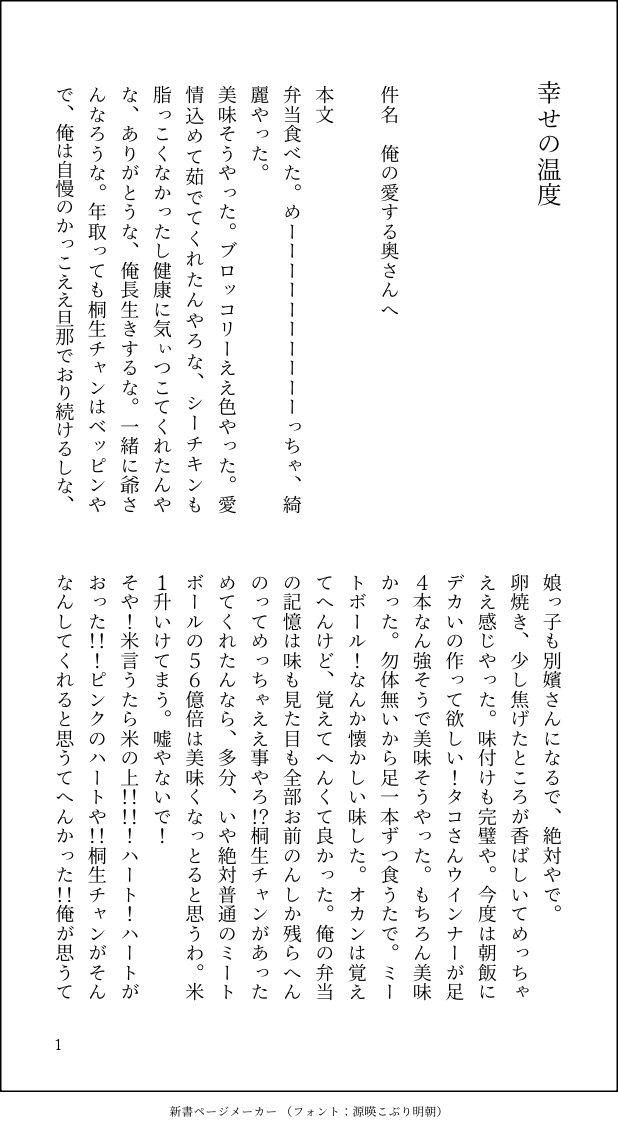 幸せの温度
件名　俺の愛する奥さんへ
本文
弁当食べた。めーーーーーーーーーーっちゃ、綺
麗やった。
美味そうやった。ブロッコリーええ色やった。愛
情込めて茹でてくれたんやろな、シーチキンも
脂っこくなかったし健康に気ぃつこてくれたんや
な、ありがとうな、俺長生きするな。一緒に爺さ
んなろうな。年取っても桐生チャンはベッピンや
で、俺は自慢のかっこええ旦那でおり続けるしな、
娘っ子も別嬪さんになるで、絶対やで。
卵焼き、少し焦げたところが香ばしいてめっちゃ
ええ感じやった。味付けも完璧や。今度は朝飯に
デカいの作って欲しい！タコさんウインナーが足
４本なん強そうで美味そうやった。もちろん美味
かった。勿体無いから足一本ずつ食うたで。ミー
トボール！なんか懐かしい味した。オカンは覚え
てへんけど、覚えてへんくて良かった。俺の弁当
の記憶は味も見た目も全部お前のんしか残らへん
のってめっちゃええ事やろ!?桐生チャンがあった
めてくれたんなら、多分、いや絶対普通のミート
ボールの５６億倍は美味くなっとると思うわ。米
１升いけてまう。嘘やないで！
そや！米言うたら米の上!!!！ハート！ハートが
おった!!！ピンクのハートや!!桐生チャンがそん
なんしてくれると思うてへんかった!!俺が思うて
1
新書ページメーカー（フォント：源暎こぶり明朝）